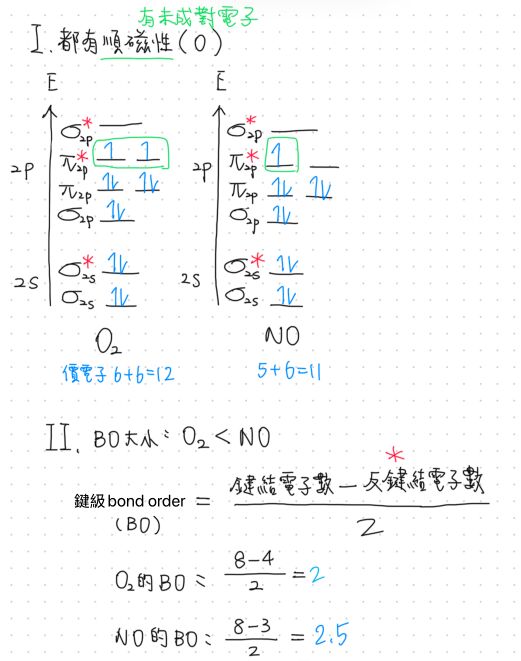 有未成對電子
I. 都有順磁性(O)
E
E
σ*2p
π*2p 1 1
2p
π2p 1l 1l
σ2p 1l
σ*2s 1l
2s
σ2s 1l
O2
價電子 6+6=12
σ*2p
π*2p 1
2p
π2p 1l 1l
σ2p 1l
σ*2s 1l
2s
σ2s 1l
NO
5+6=11
II. BO大小: O2 < NO
鍵級bond order (BO) = 鍵結電子數 - 反鍵結電子數* / 2
O2的BO: 8-4 / 2 = 2
NO的BO: 8-3 / 2 = 2.5